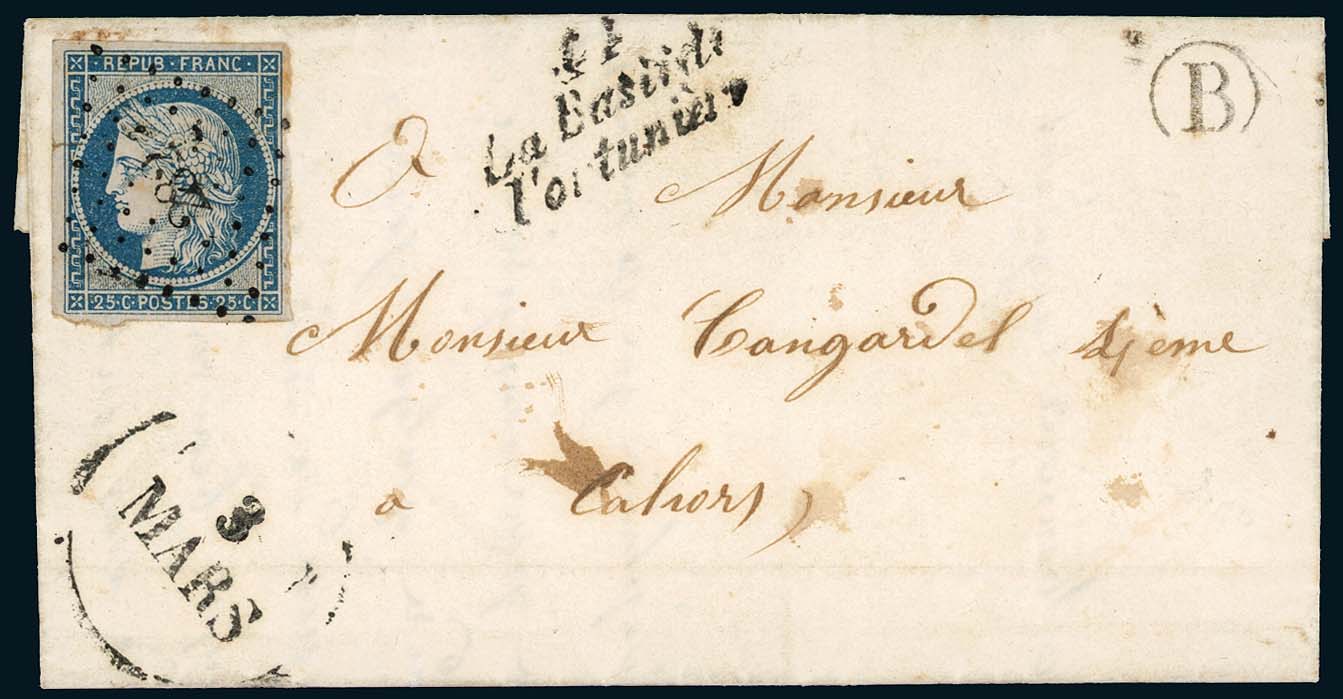 REPUB·FRANC·
25·C·POSTES·25·C
La Bastide
Fortunière
B
A Monsieur
Monsieur Cangardel
a Cahors
3
MARS